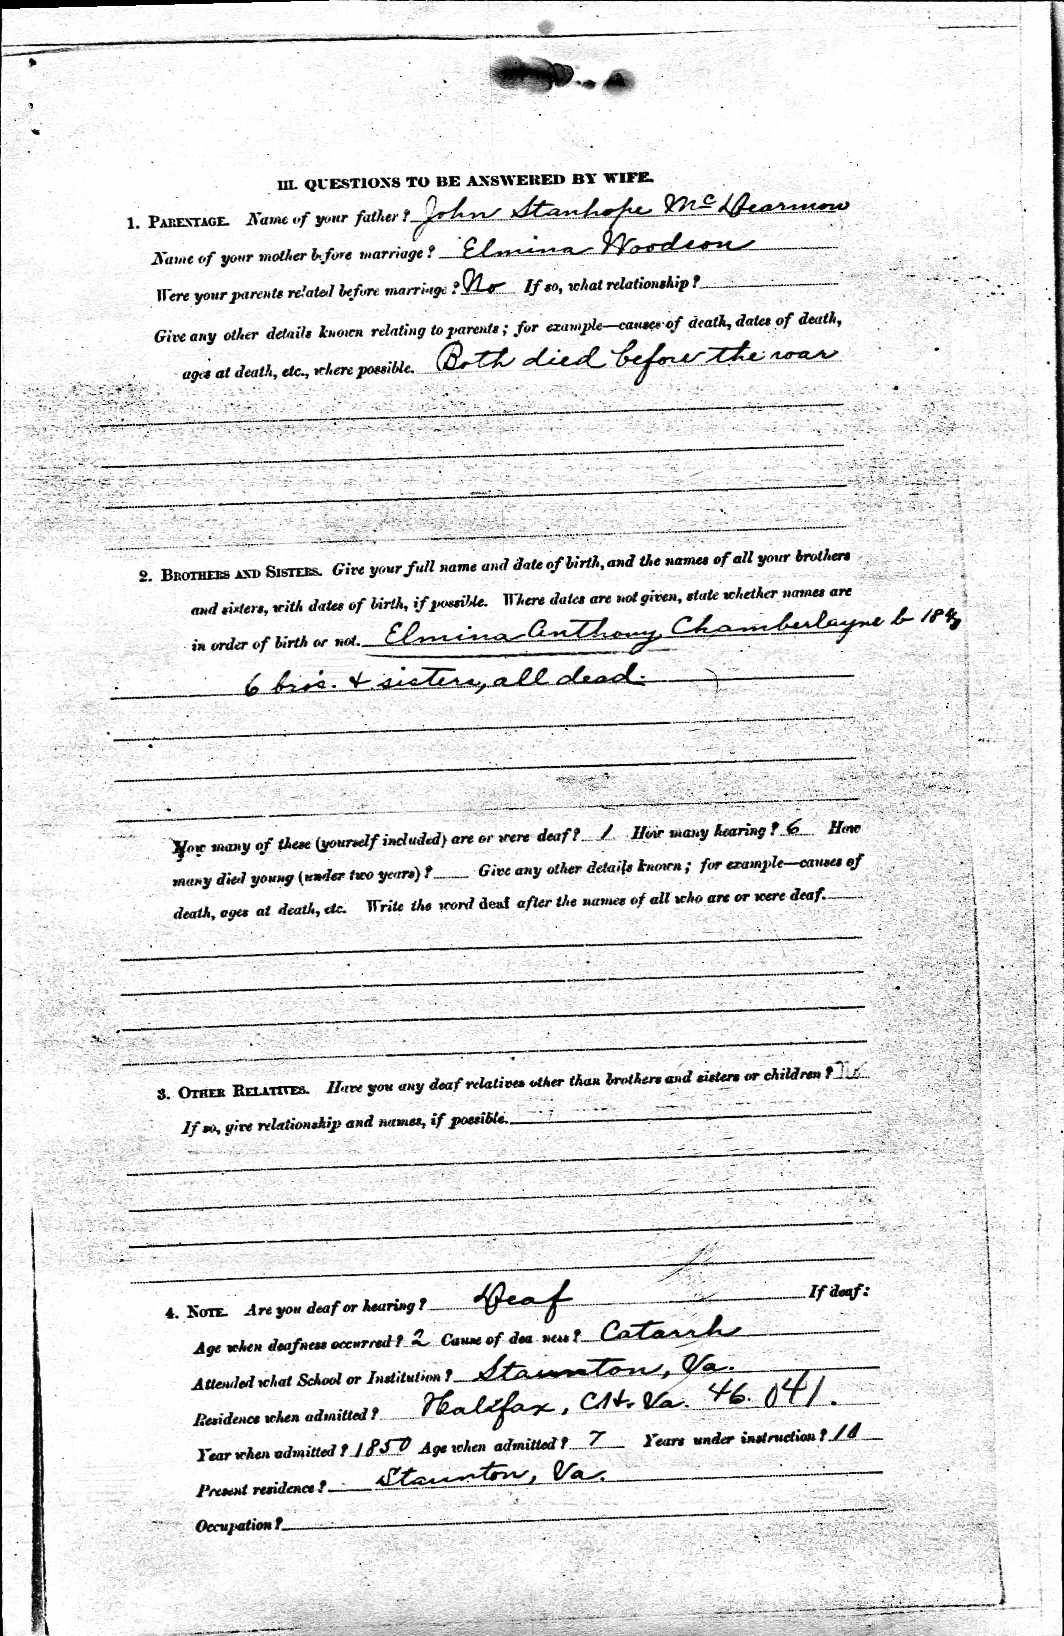 III. QUESTIONS TO BE ANSWERED BY WIFE.
1. PARENTAGE. Name of your father? John Stanhope McDearmon
Name of your mother before marriage? Elmina Woodson
Were your parents related before marriage? No If so, what relationship?
Give any other details known relating to parents; for example—causes of death, dates of death,
ages at death, etc., where possible. Both died before the war
2. BROTHERS AND SISTERS. Give your full name and date of birth, and the names of all your brothers
and sisters, with dates of birth, if possible. Where dates are not given, state whether names are
in order of birth or not. Elmina Anthony Chamberlayne b
6 bro's. & sisters, all dead.
How many of these (yourself included) are or were deaf? 1 How many hearing? 6 How
many died young (under two years)? Give any other details known; for example—causes of
death, ages at death, etc. Write the word deaf after the names of all who are or were deaf.
3. OTHER RELATIVES. Have you any deaf relatives other than brothers and sisters or children? No
If so, give relationship and names, if possible.
4. NOTE. Are you deaf or hearing? Deaf If deaf:
Age when deafness occurred? 2 Cause of dea ness? Catarrh
Attended what School or Institution? Staunton, Va.
Residence when admitted? Halifax, C.H. Va. 46. 041.
Year when admitted? 1850 Age when admitted? 7 Years under instruction?
Present residence? Staunton, Va.
Occupation?